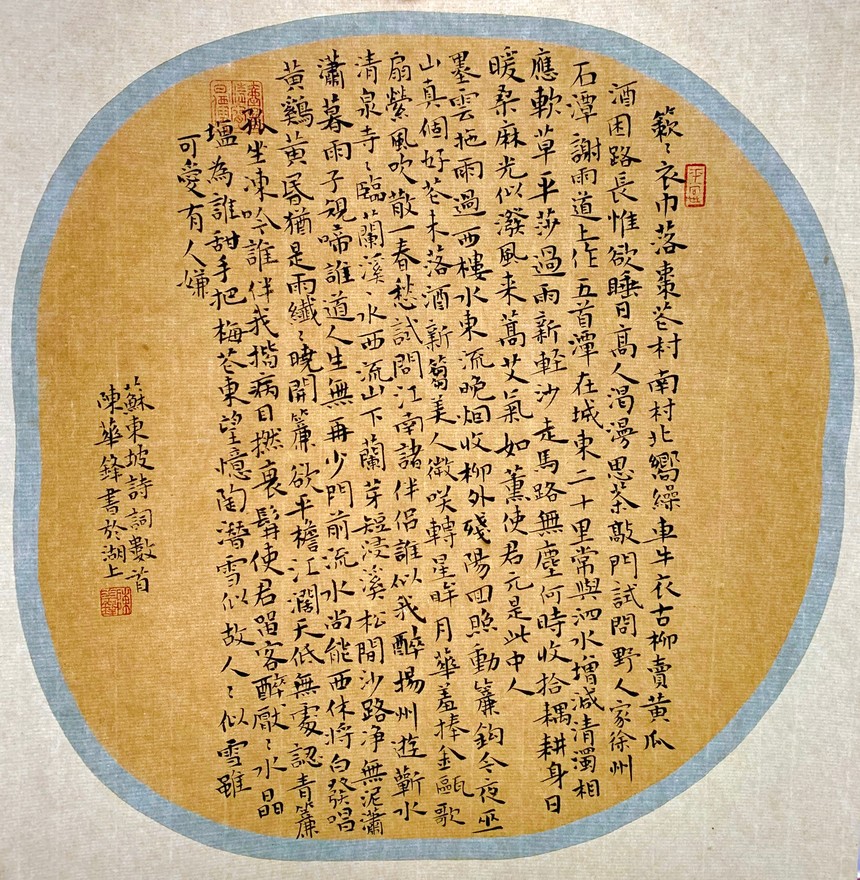 簌〻衣巾落棗花村南村北嚮繰車牛衣古柳賣黄瓜
酒困路長惟欲睡日高人渴漫思茶敲門試問野人家徐州
石潭謝雨道上作五首潭在城東二十里常與泗水增減清濁相
應軟草平莎過雨新輕沙走馬路無塵何時收拾耦耕身日
暖桑麻光似潑風来蒿艾氣如薰使君元是此中人
墨雲拖雨過西樓水東流晚烟收柳外殘陽回照動簾鈎今夜巫
山真個好花未落酒新篘美人微咲轉星眸月華羞捧金甌歌
扇縈風吹散一春愁試問江南諸伴侣誰似我醉揚州遊蘄水
清泉寺〻臨蘭溪〻水西流山下蘭芽短浸溪松間沙路净無泥瀟
瀟暮雨子規啼誰道人生無再少門前流水尚能西休將白發唱
黄鷄黄昬猶是雨纖〻曉開簾欲平檐江濶天低無處認青簾
孤坐凍吟誰伴我揩病目撚衰髯使君留客醉厭〻水晶
塩為誰甜手把梅花東望憶陶潛雪似故人〻似雪雖
可愛有人嫌
蘇東坡詩詞數首
陳華鋒書於湖上